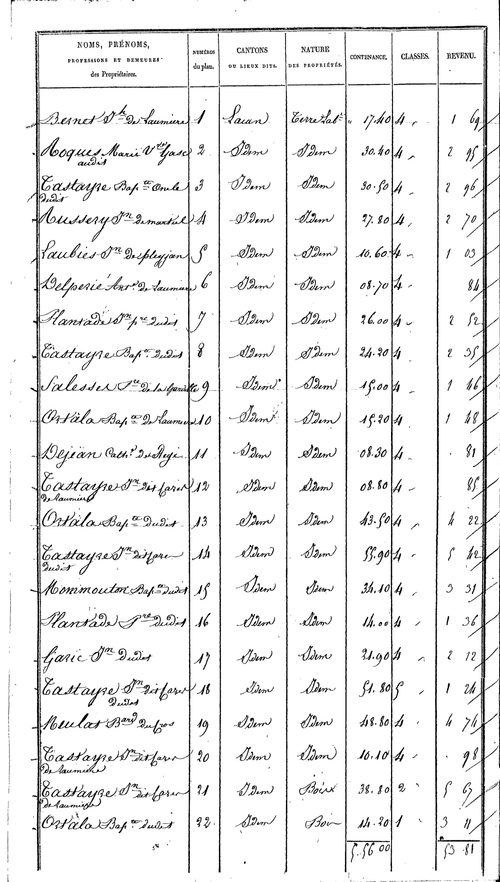 NOMS, PRÉNOMS, PROFESSIONS ET DEMEURES des Propriétaires. NUMÉROS du plan. CANTONS OU LIEUX DITS. NATURE DES PROPRIÉTÉS. CONTENANCE. CLASSES. REVENU.
Bernet Jh de Laumiere 1 Lacan Terre Labe " 17.40 4 " 1 69
Roques Marie Vve Gasc 2 Idem Idem 30.40 4 " 2 95
audit
Tastayre Bapte Oncle 3 Idem Idem 30.50 4 " 2 96
dudit
Aussery Jn de martiel 4 Idem Idem 27.80 4 " 2 70
Laubies Jn de 5 Idem Idem 10.60 4 " 1 03
Delperié Ant de Laumiere 6 Idem Idem 08.70 4 " 84
Plantade Jn pre dudit 7 Idem Idem 26.00 4 " 2 52
Tastayre Bapte dudit 8 Idem Idem 24.20 4 " 2 35
Salesses de la 9 Idem Idem 15.00 4 " 1 46
Ortala Bapte de Laumiere 10 Idem Idem 15.20 4 " 1 48
Dejean Cathe 11 Idem Idem 08.30 4 " 81
Tastayre Jn dit 12 Idem Idem 08.80 4 " 85
de Laumiere
Ortala Bapte dudit 13 Idem Idem 43.50 4 " 4 22
Tastayre Jn dit 14 Idem Idem 55.90 4 " 5 42
dudit
Monmouton Bapte dudit 15 Idem Idem 34.10 4 " 3 31
Plantade Pre dudit 16 Idem Idem 14.00 4 " 1 36
Garic Jn dudit 17 Idem Idem 21.90 4 " 2 12
Tastayre Jn dit 18 Idem Idem 51.80 5 " 1 24
dudit
Meulat Bard 19 Idem Idem 48.80 4 " 4 74
Tastayre Jn dit 20 Idem Idem 10.10 4 " 98
de Laumiere
Tastayre Jn dit 21 Idem Bois 38.80 2 " 5 67
de Laumiere
Ortala Bapte dudit 22 Idem Bois 14.20 1 " 3 11
5.56 00 53.81